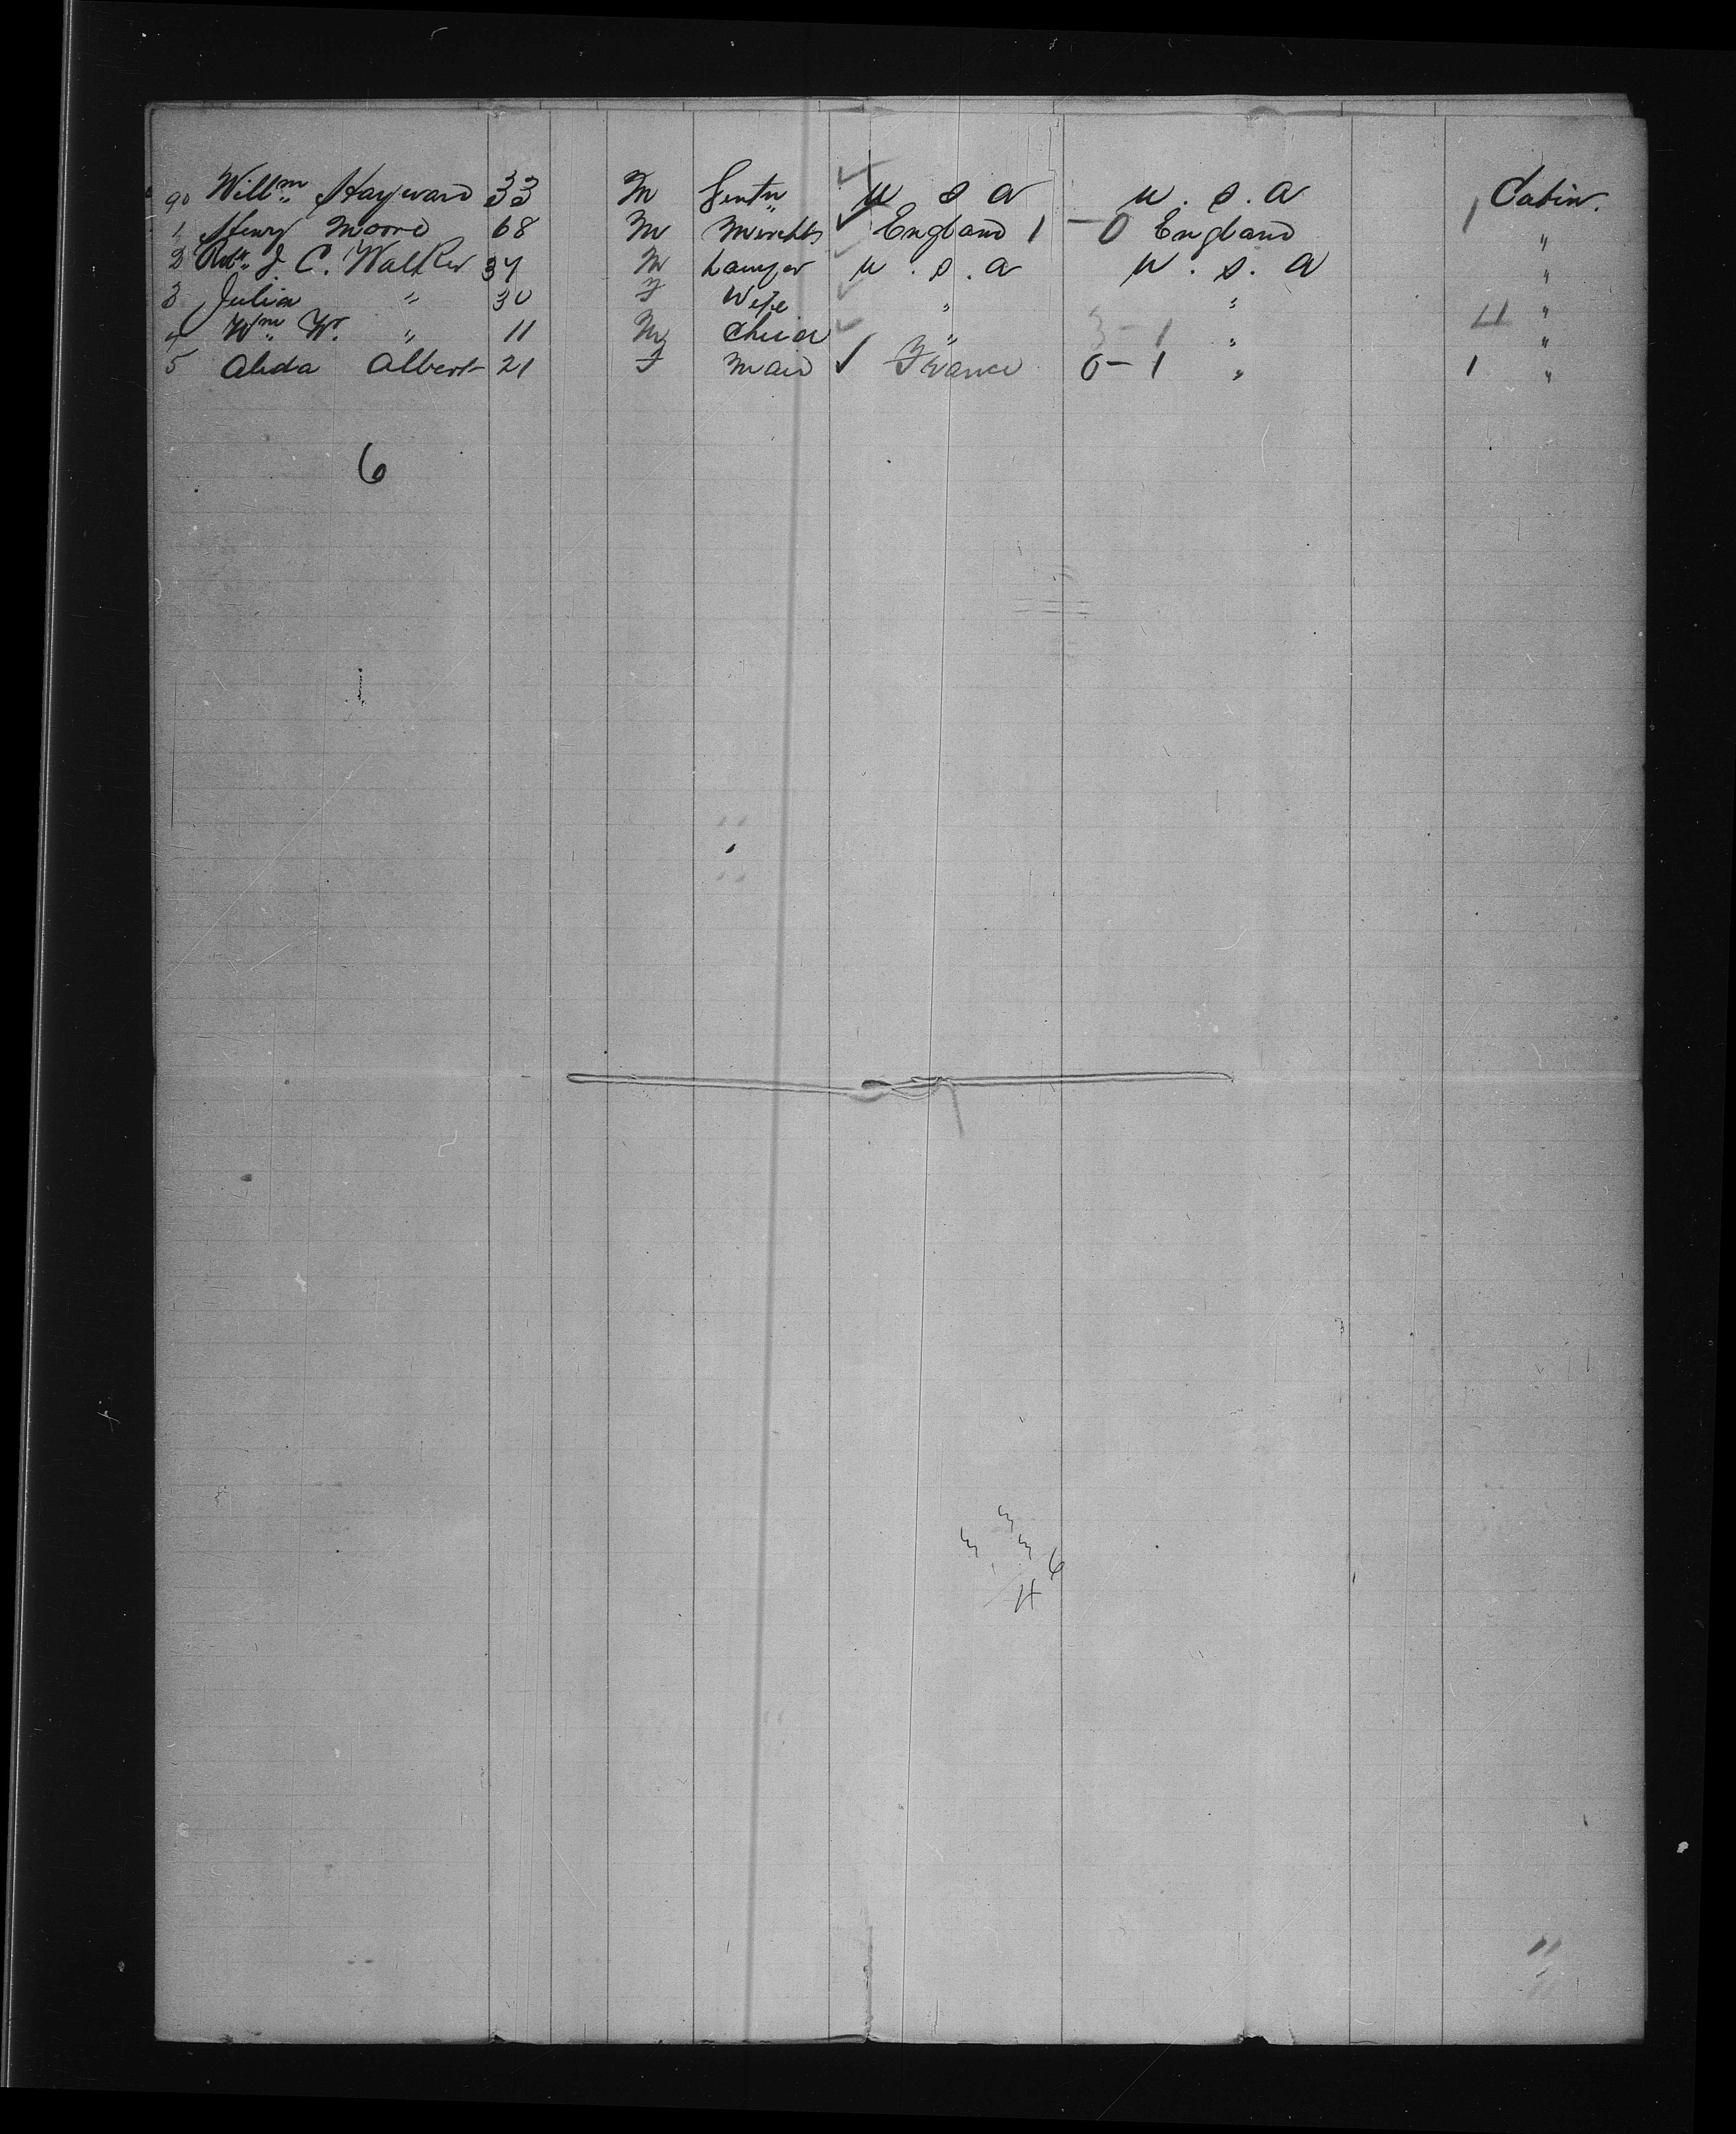 90 Willm Hayward 33 M Gentn U S A U. S. A 1 Cabin.
1 Henry Moore 68 M Merchts England 1 - 0 England "
2 Robt J. C. Walker 37 M Lawyer U. S. A U. S. A "
3 Julia " 30 F Wife " " "
4 Wm W. " 11 M Child " 3 - 1 " 4 "
5 Alida Albert 21 F Maid France 0 - 1 " 1 "
6
3 3 3 6
4